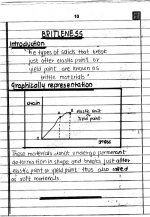 10
BRITLENESS
Introduction
"The types of solids that break
just after elastic point or
yield point are known as
brittle materials."
Graphically representation
strain
elastic limit
or
Yield point
stress
These materials donot undergo permanent
deformation in shape and breaks just after
elastic point or yield point thus also called
as soft materials.